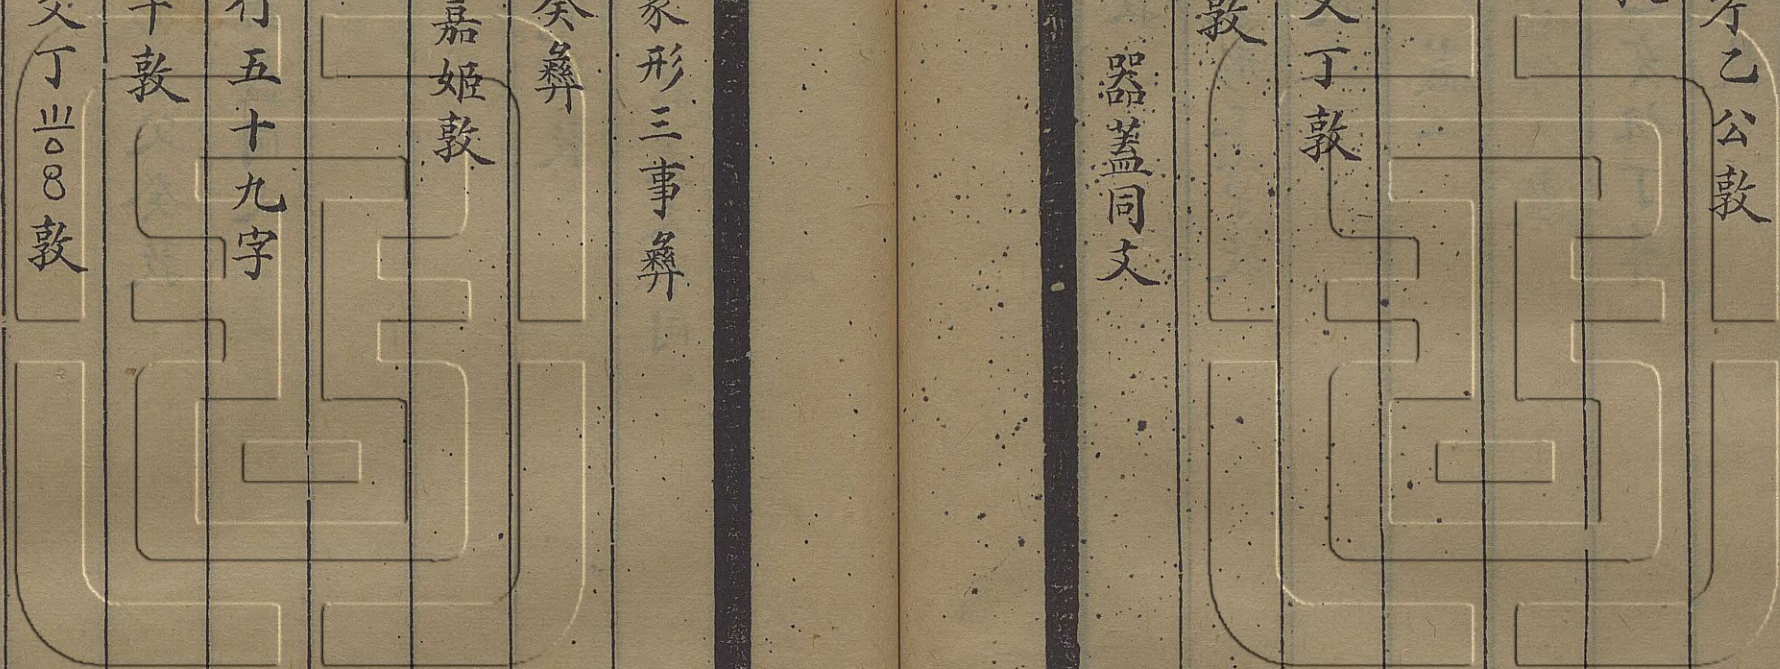 乙公敦
父丁敦
敦
器蓋同文
形三事彝
癸彝
嘉姬敦
五十九字
敦
父丁
敦